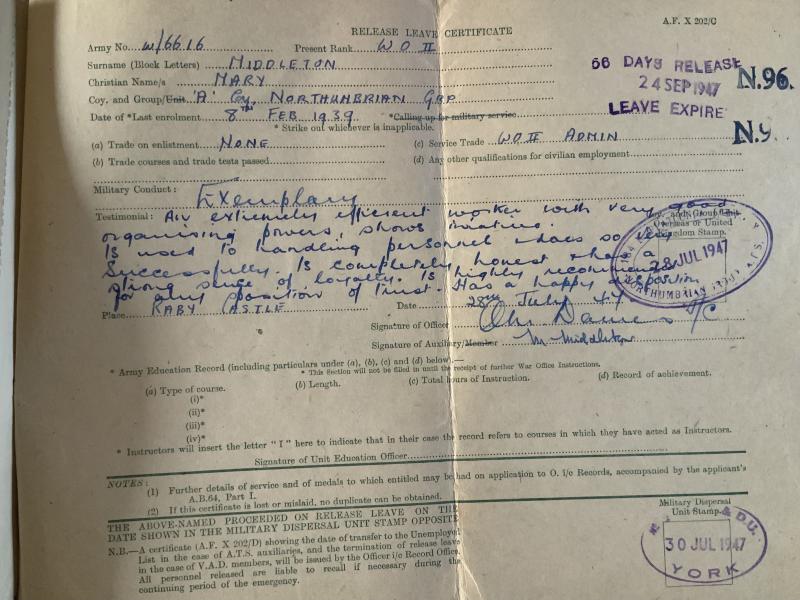 A.F. X 202/C
RELEASE LEAVE CERTIFICATE
Army No. W/6616 Present Rank W O II
Surname (Block Letters) MIDDLETON
Christian Name/s MARY
Coy. and Group/Unit 'A' Coy. NORTHUMBRIAN GRP
Date of *Last enrolment 8TH FEB 1939 *Calling up for military service
* Strike out whichever is inapplicable.
56 DAYS RELEASE
24 SEP 1947
LEAVE EXPIRE
N.96.
N.9
(a) Trade on enlistment NONE (c) Service Trade WO II ADMIN
(b) Trade courses and trade tests passed (d) Any other qualifications for civilian employment
Military Conduct: Exemplary
Testimonial: An extremely efficient worker with very good
organising powers, shows
Is used to handling personnel & does so very
Successfully. Is completely honest & has a
strong sense of loyalty. Is highly recommended
for any position of trust. Has a happy disposition
Coy. and Group/Unit
Overseas or United
Kingdom Stamp.
28 JUL 1947
NORTHUMBRIAN GROUP
Place RABY CASTLE Date 28th July 47
Signature of Officer
Signature of Auxiliary/Member M. Middleton
* Army Education Record (including particulars under (a), (b), (c) and (d) below).—
* This Section will not be filled in until the receipt of further War Office Instructions.
(a) Type of course. (b) Length. (c) Total hours of Instruction. (d) Record of achievement.
(i)*
(ii)*
(iii)*
(iv)*
* Instructors will insert the letter "I" here to indicate that in their case the record refers to courses in which they have acted as Instructors.
Signature of Unit Education Officer
NOTES:
(1) Further details of service and of medals to which entitled may be had on application to O. i/c Records, accompanied by the applicant's
A.B.64, Part I.
(2) If this certificate is lost or mislaid, no duplicate can be obtained.
THE ABOVE-NAMED PROCEEDED ON RELEASE LEAVE ON THE
DATE SHOWN IN THE MILITARY DISPERSAL UNIT STAMP OPPOSITE
N.B.—A certificate (A.F. X 202/D) showing the date of transfer to the Unemployed
List in the case of A.T.S. auxiliaries, and the termination of release leave
in the case of V.A.D. members, will be issued by the Officer i/c Record Office.
All personnel released are liable to recall if necessary during the
continuing period of the emergency.
Military Dispersal
Unit Stamp.
& D.U.
30 JUL 1947
YORK